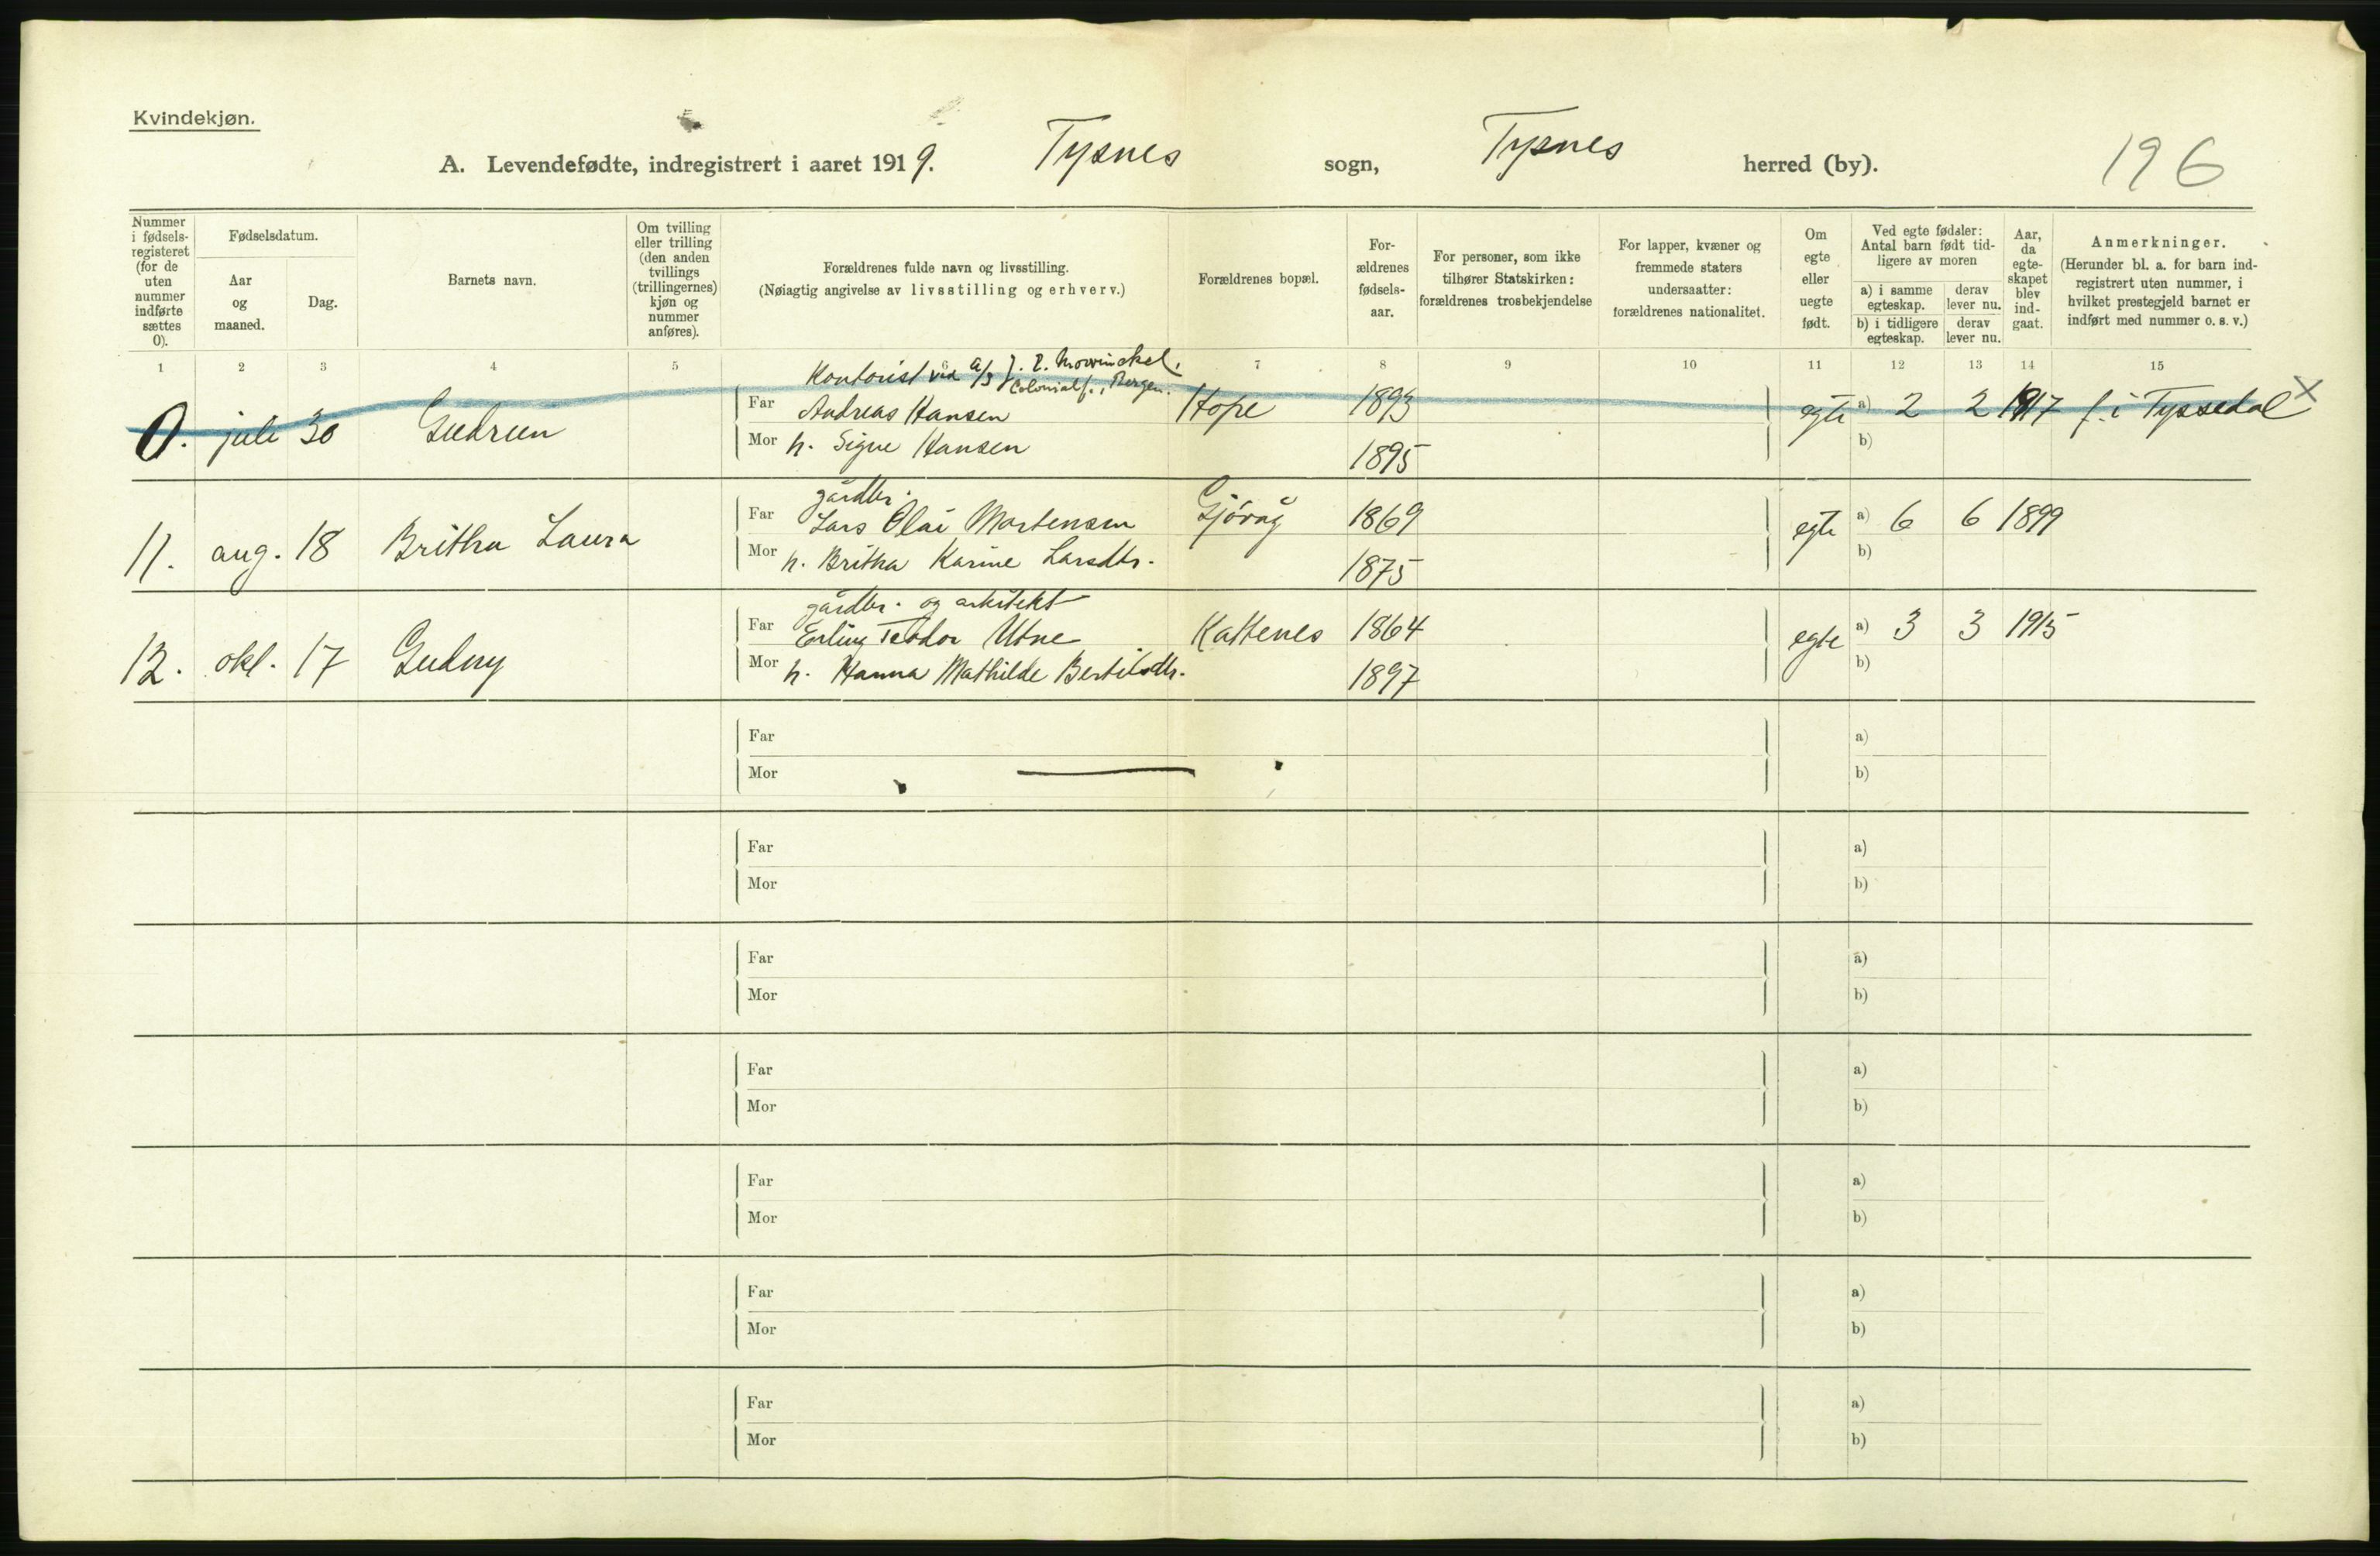 Kvindekjøn.
A. Levendefødte, indregistrert i aaret 1919. Tysnes sogn, Tysnes herred (by). 196
Nummer i fødselsregisteret (for de uten nummer indførte sættes 0).
Fødselsdatum.
Aar og maaned.
Dag.
Barnets navn.
Om tvilling eller trilling (den anden tvillings (trillingernes) kjøn og nummer anføres).
Forældrenes fulde navn og livsstilling.
(Nøiagtig angivelse av livsstilling og erhverv.)
Forældrenes bopæl.
Forældrenes fødselsaar.
For personer, som ikke tilhører Statskirken: forældrenes trosbekjendelse
For lapper, kvæner og fremmede staters undersaatter: forældrenes nationalitet.
Om egte eller uegte født.
Ved egte fødsler: Antal barn født tidligere av moren
a) i samme egteskap. derav lever nu.
b) i tidligere egteskap. derav lever nu.
Aar, da egteskapet blev indgaat.
Anmerkninger.
(Herunder bl. a. for barn indregistrert uten nummer, i hvilket prestegjeld barnet er indført med nummer o. s. v.)
1 2 3 4 5 6 7 8 9 10 11 12 13 14 15
Kontorist ved A/S J. E. Mowinckel.
Colonialf., Bergen.
0. juli 30 Gudrun Far Andreas Hansen Hope 1893 egte a) 2 2 1917 f. i Tyssedal X
Mor h. Signe Hansen 1895 b)
gårdbr.
11. aug. 18 Britha Laura Far Lars Olai Mortensen Gjøvåg 1869 egte a) 6 6 1899
Mor h. Britha Karine Larsdtr. 1875 b)
gårdbr. og arkitekt
12. okt. 17 Gudny Far Erling Teodor Utne Kattenes 1864 egte a) 3 3 1915
Mor h. Hanna Mathilde Bertilsdtr. 1897 b)
Far a)
Mor b)
Far a)
Mor b)
Far a)
Mor b)
Far a)
Mor b)
Far a)
Mor b)
Far a)
Mor b)
Far a)
Mor b)